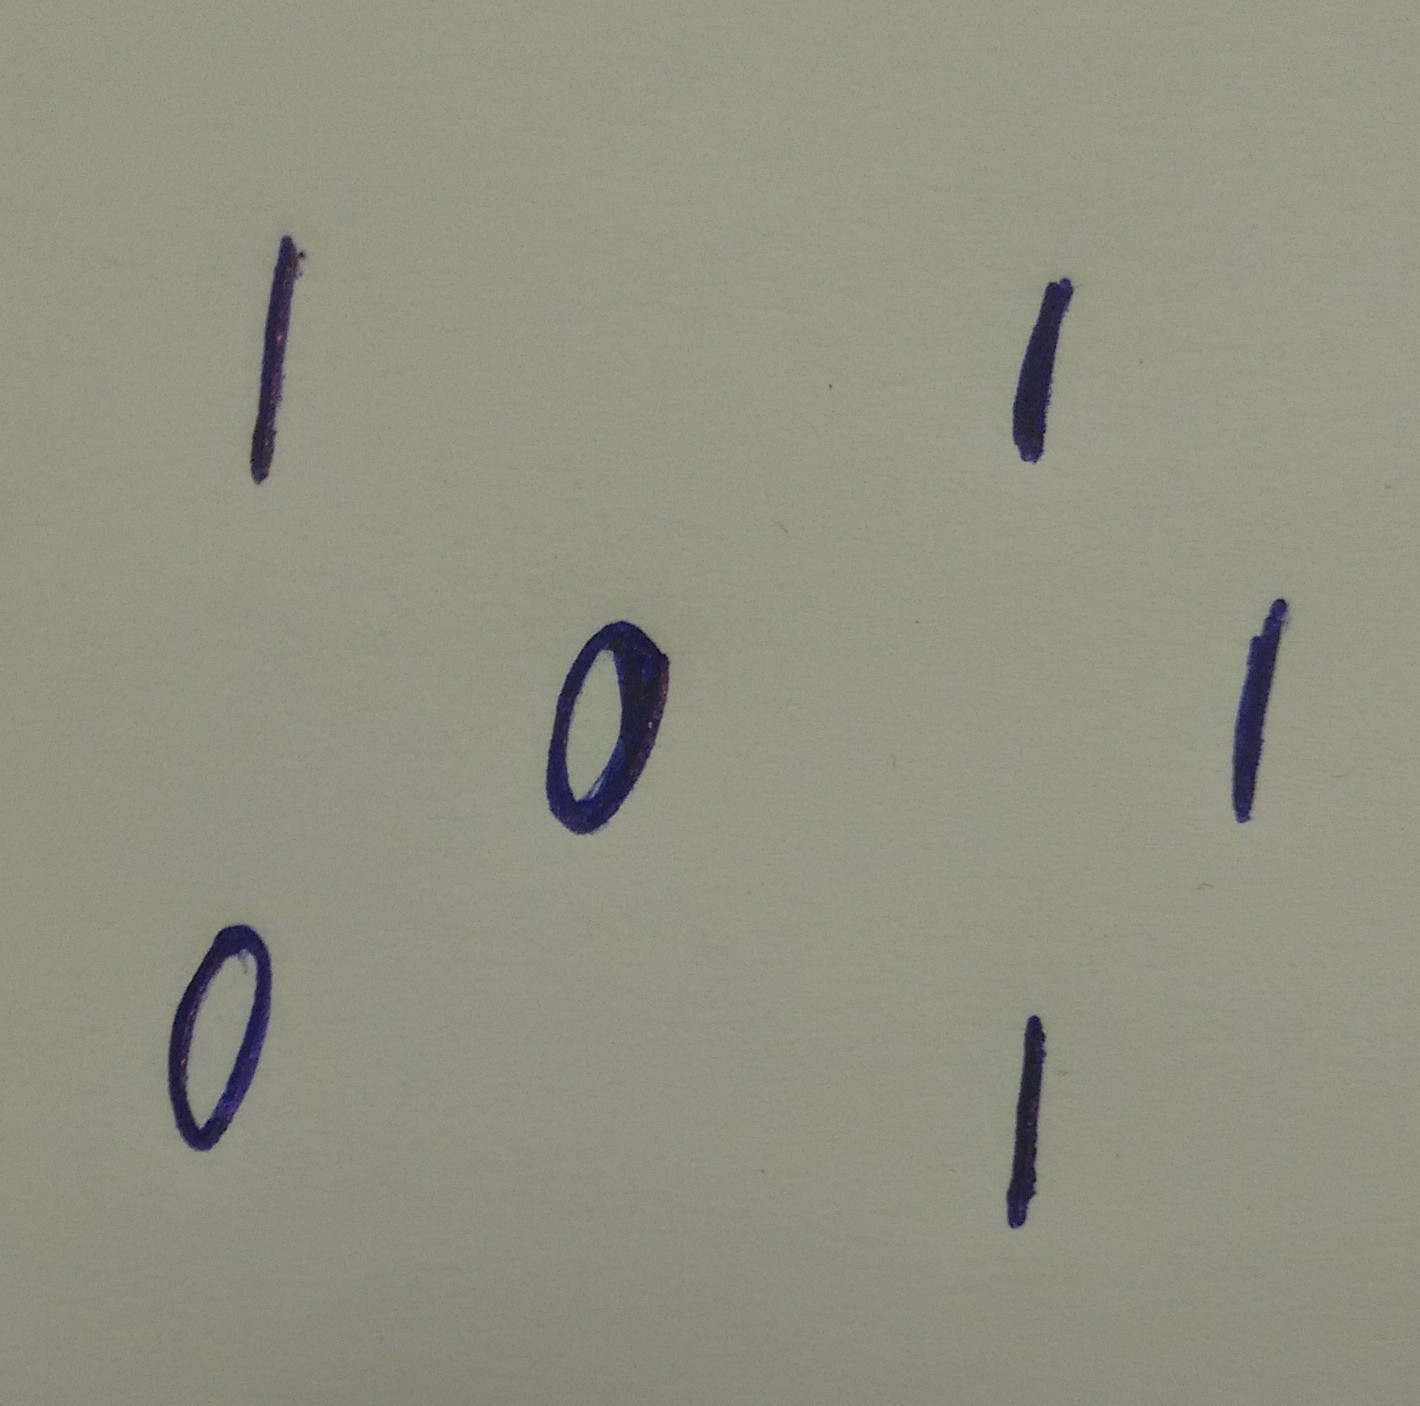 1 1
0 1
0 1